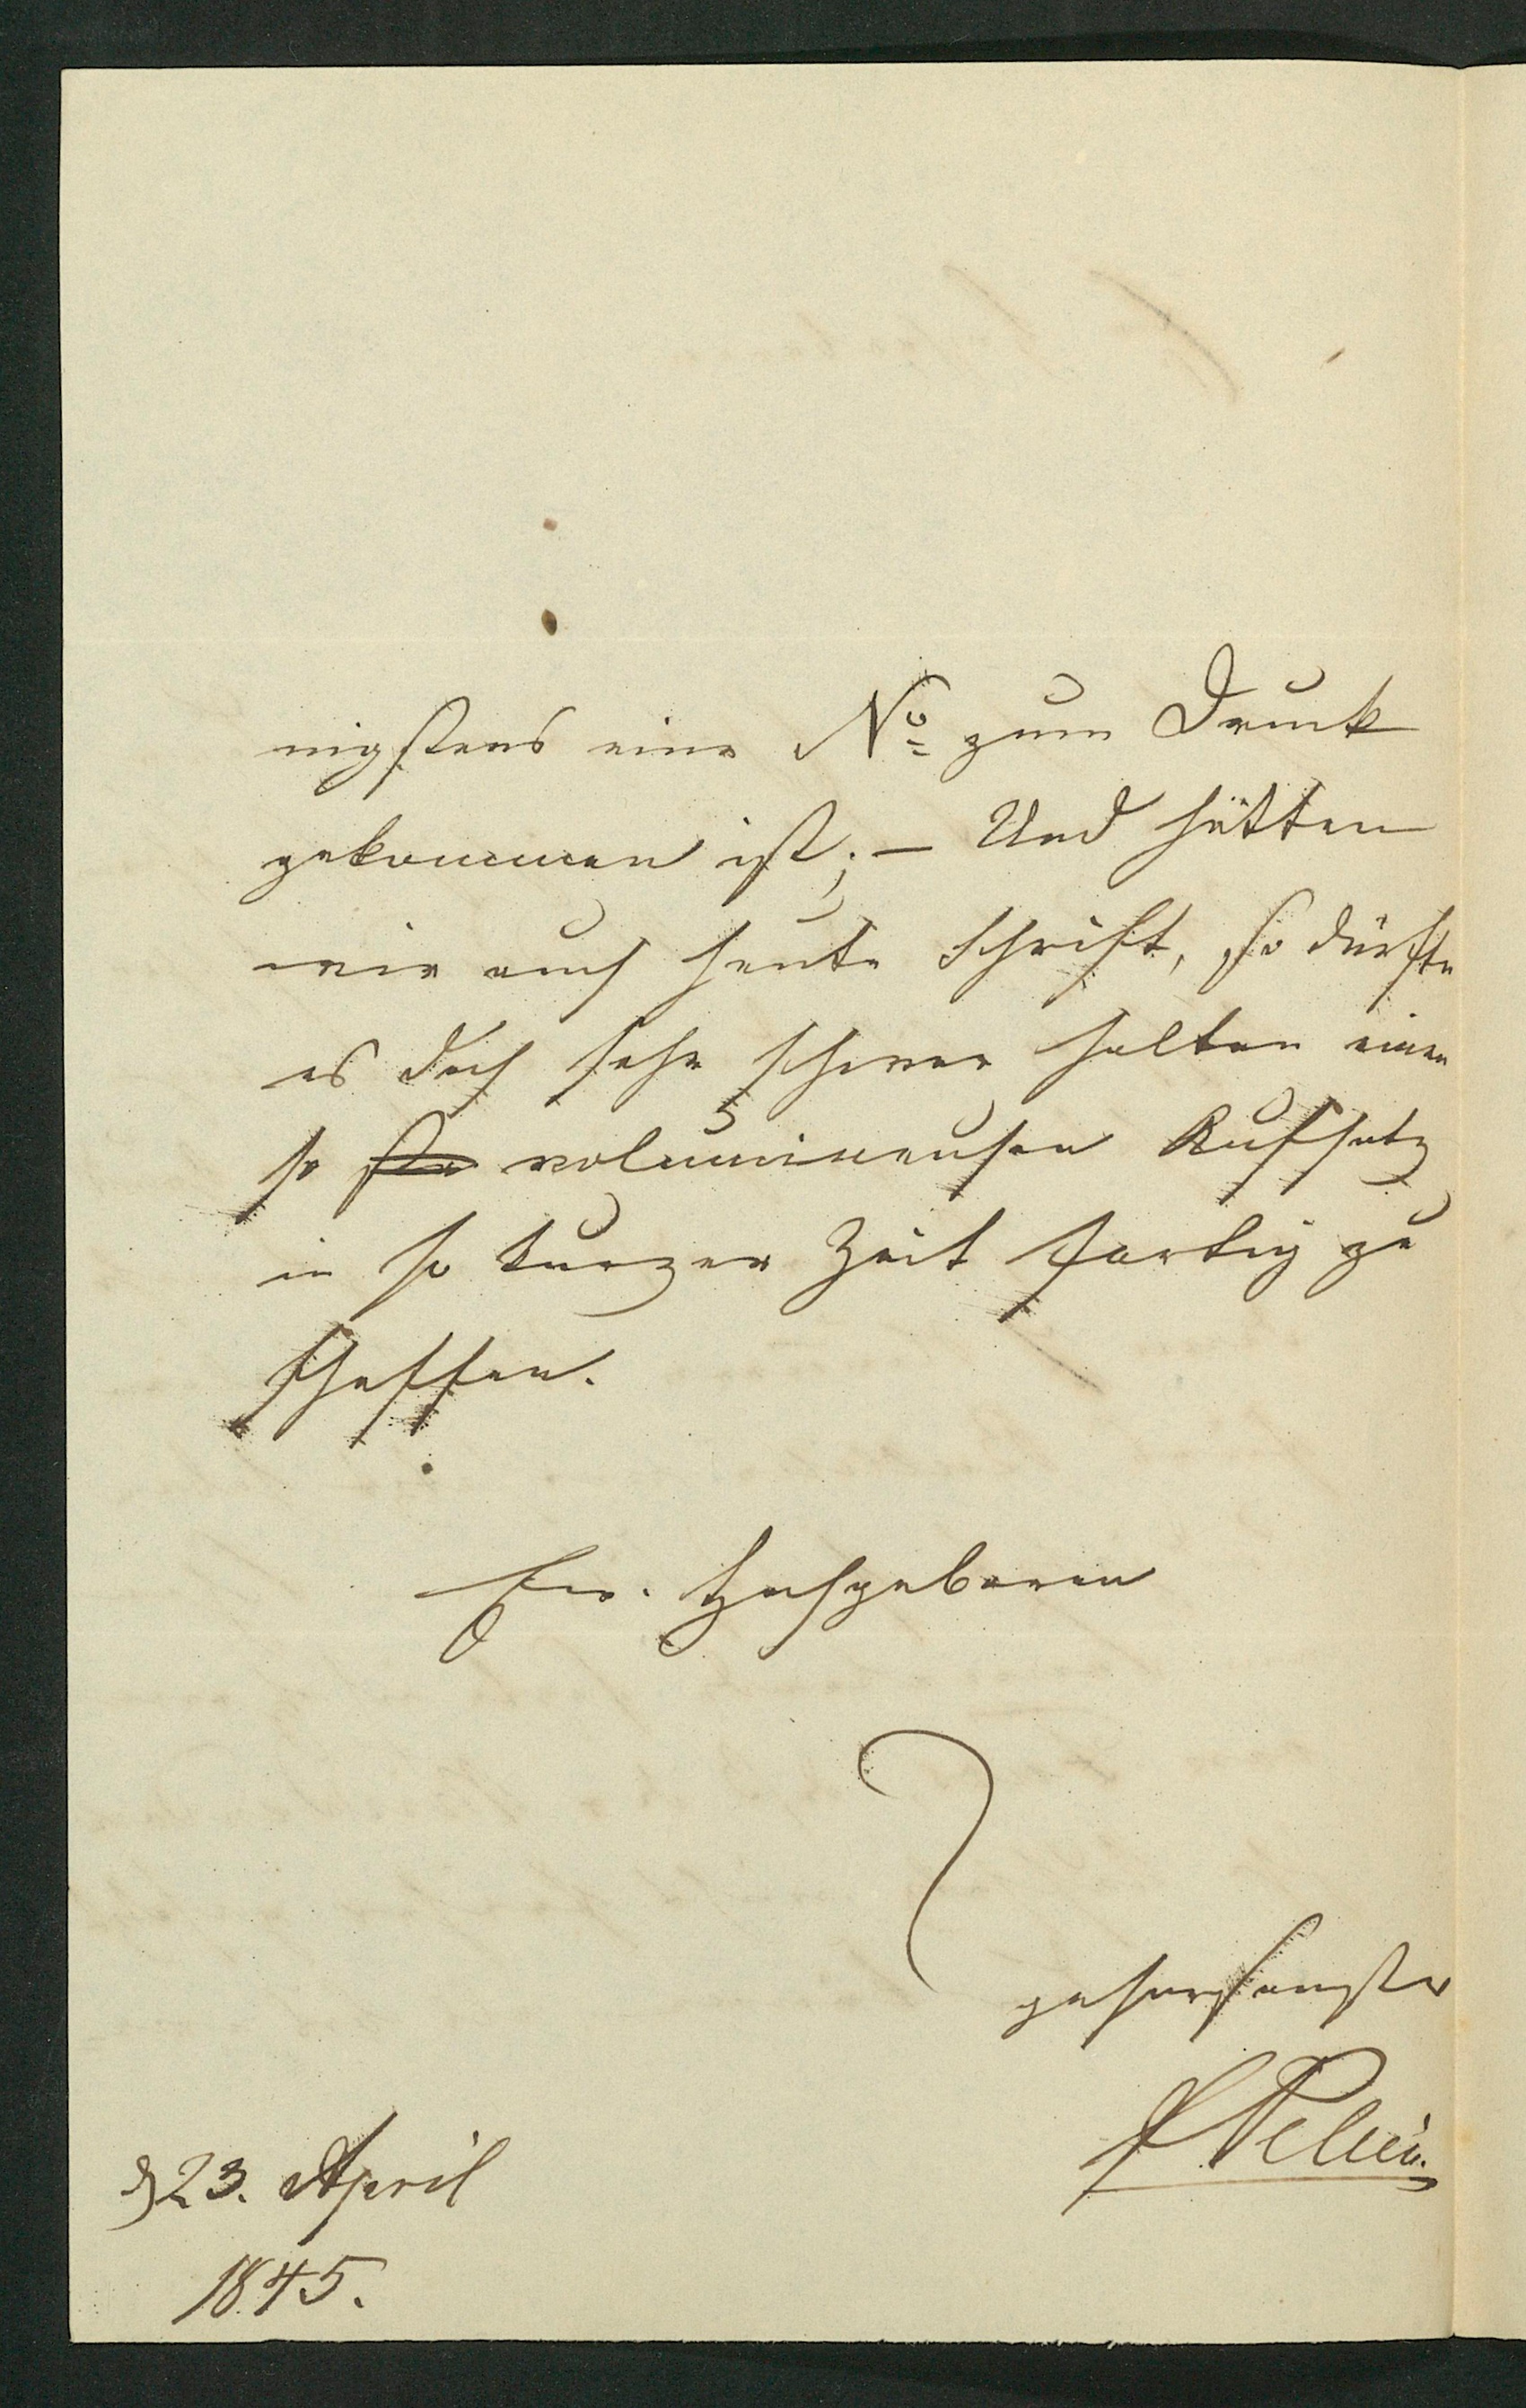 nigstens eine No zum Druck
gekommen ist; – Und hätten
wir auch heute Schrift, so dürfte
es doch sehr schwer halten einen
so volumineusen Aufsatz
in so kurzer Zeit fertig zu
schaffen.
Ew. Hochgeboren
gehorsamster
23. April
1845.